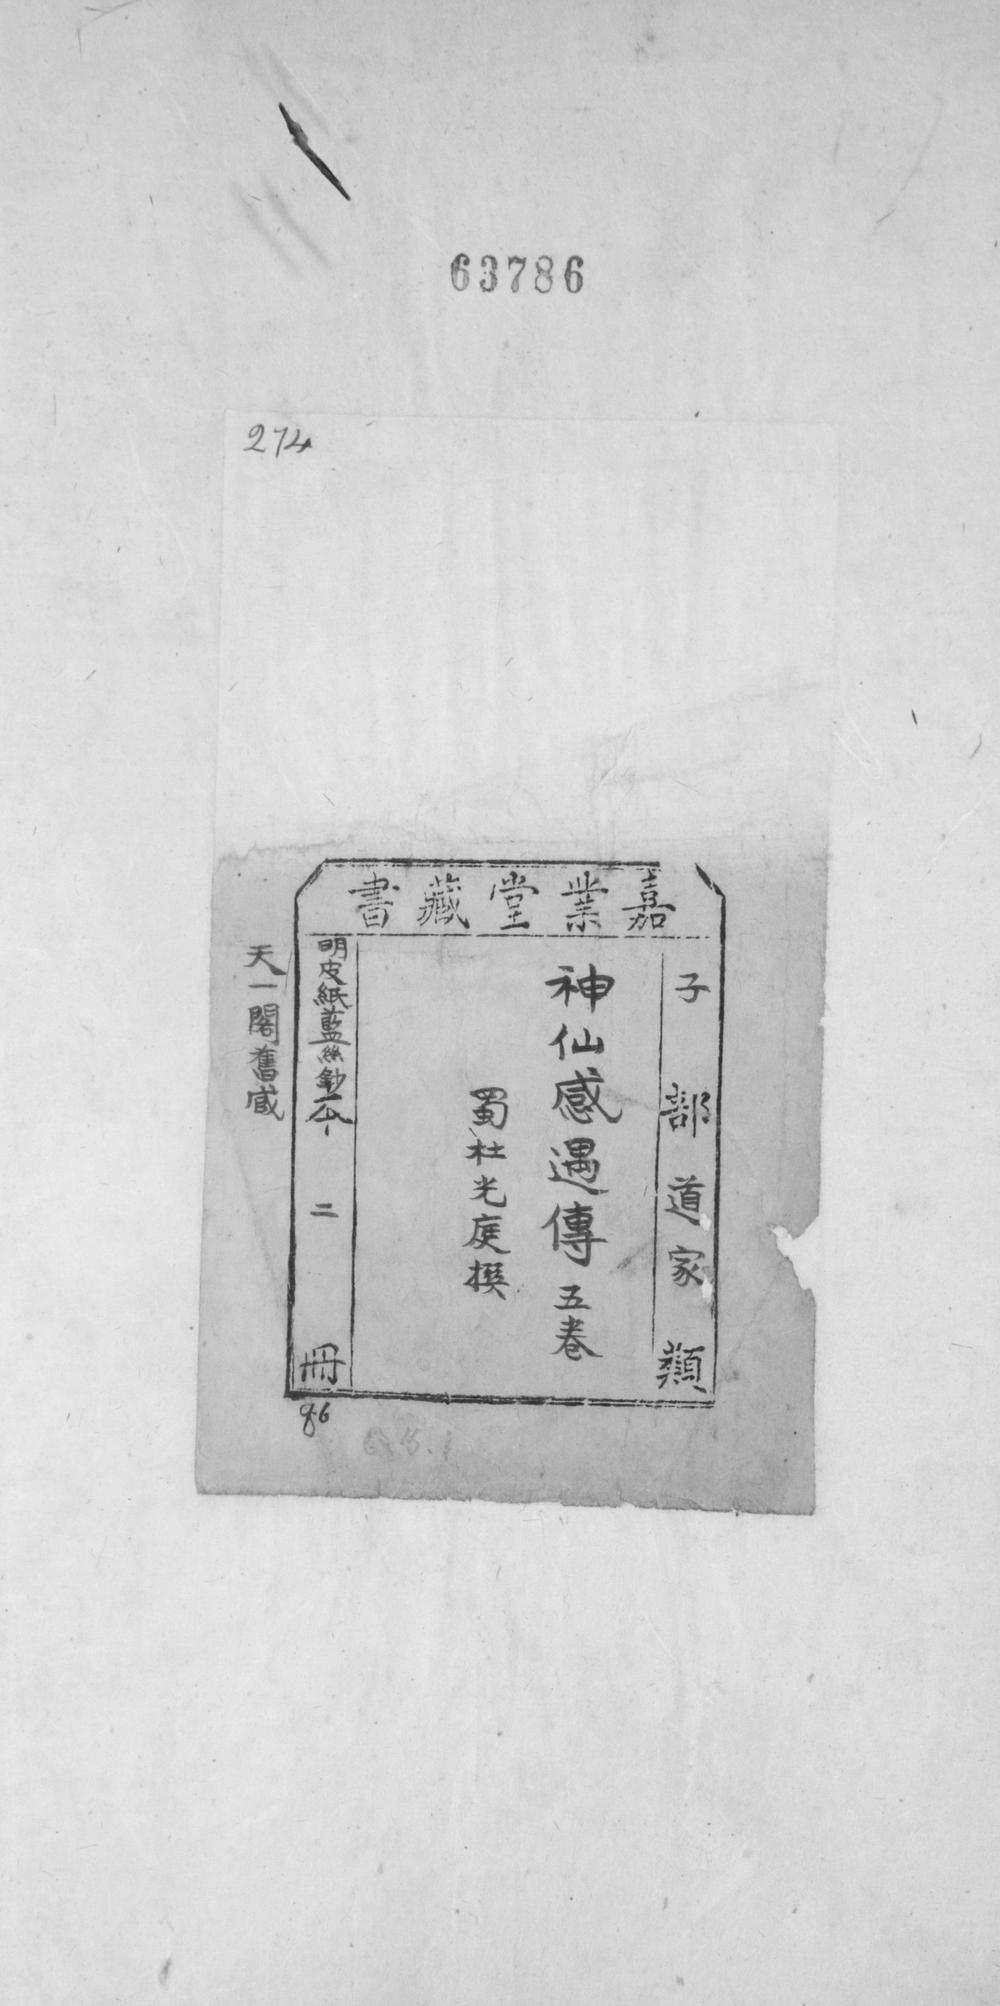 63786
274
嘉業堂藏書
子部道家類
神仙感遇傳五卷
蜀杜光庭撰
明皮紙藍絲鈔本 二冊
天一閣舊藏
86